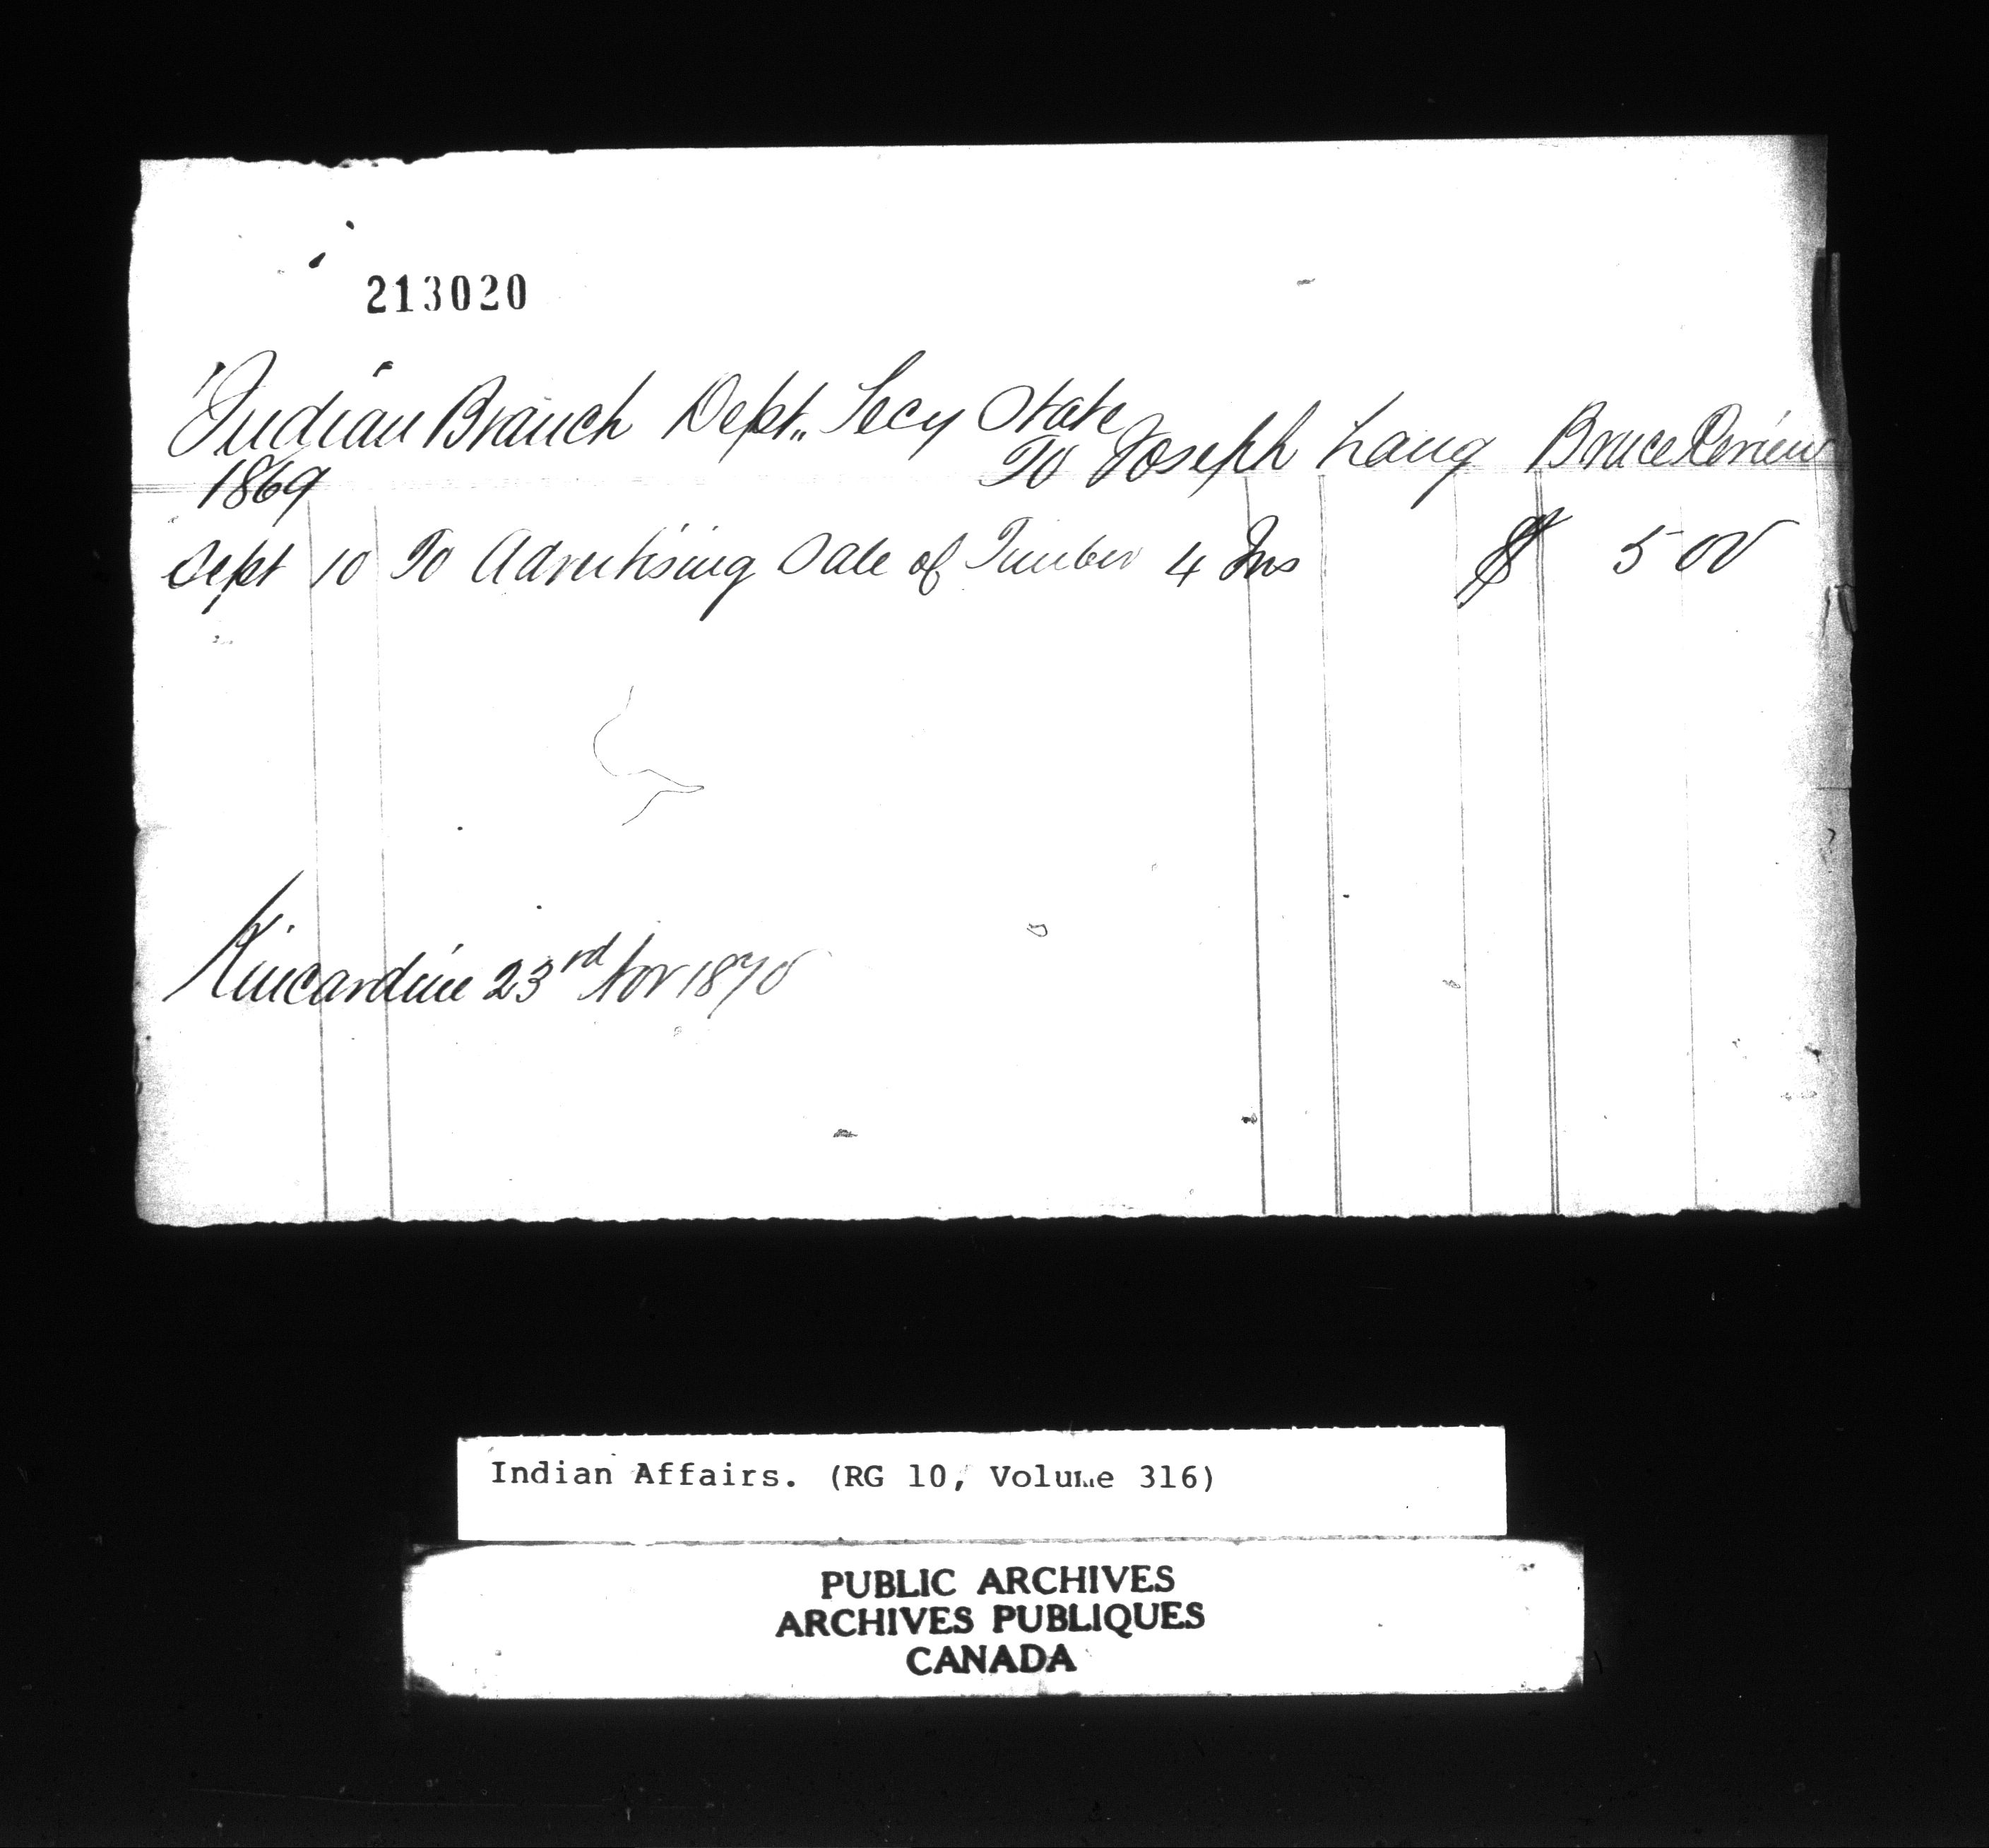 213020
Indian Branch Dept. Secy State
To Joseph Lang Bruce Review
1869
Sept 10 To Advertising Sale of Timber 4 Ins $ 5 00
Kincardine 23rd Nov 1870
Indian Affairs. (RG 10, Volume 316)
PUBLIC ARCHIVES
ARCHIVES PUBLIQUES
CANADA